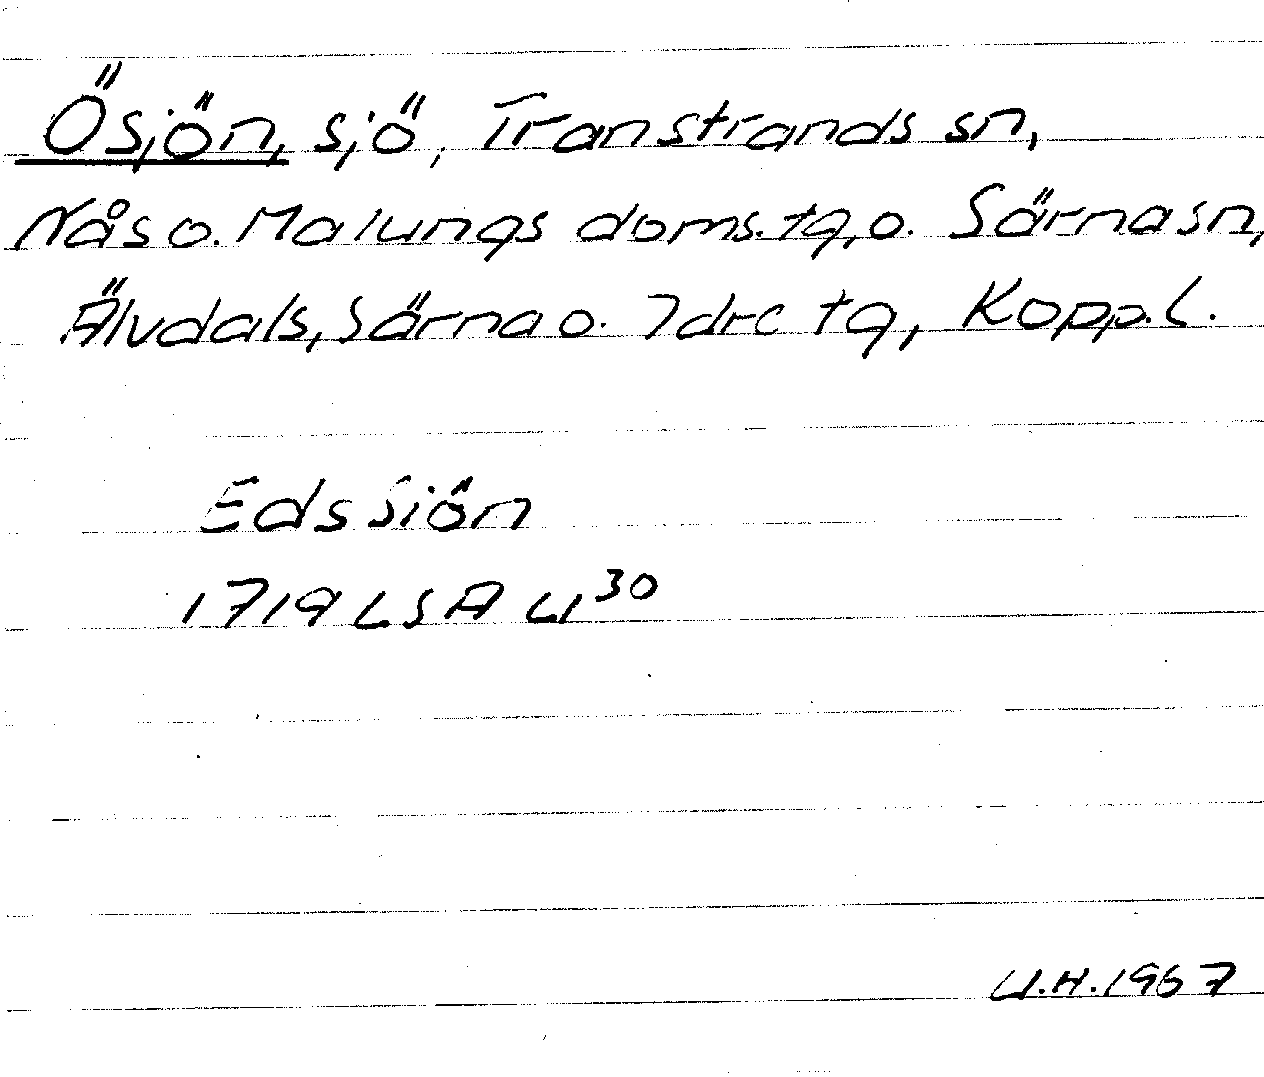 Ösjön, sjö, Transtrands sn,
Nås o. Malungs doms. tg, o. Särna sn,
Älvdals, Särna o. Idre tg, Kopp.l.
Eds Siön
1719 LSA U³⁰
U.H. 1967